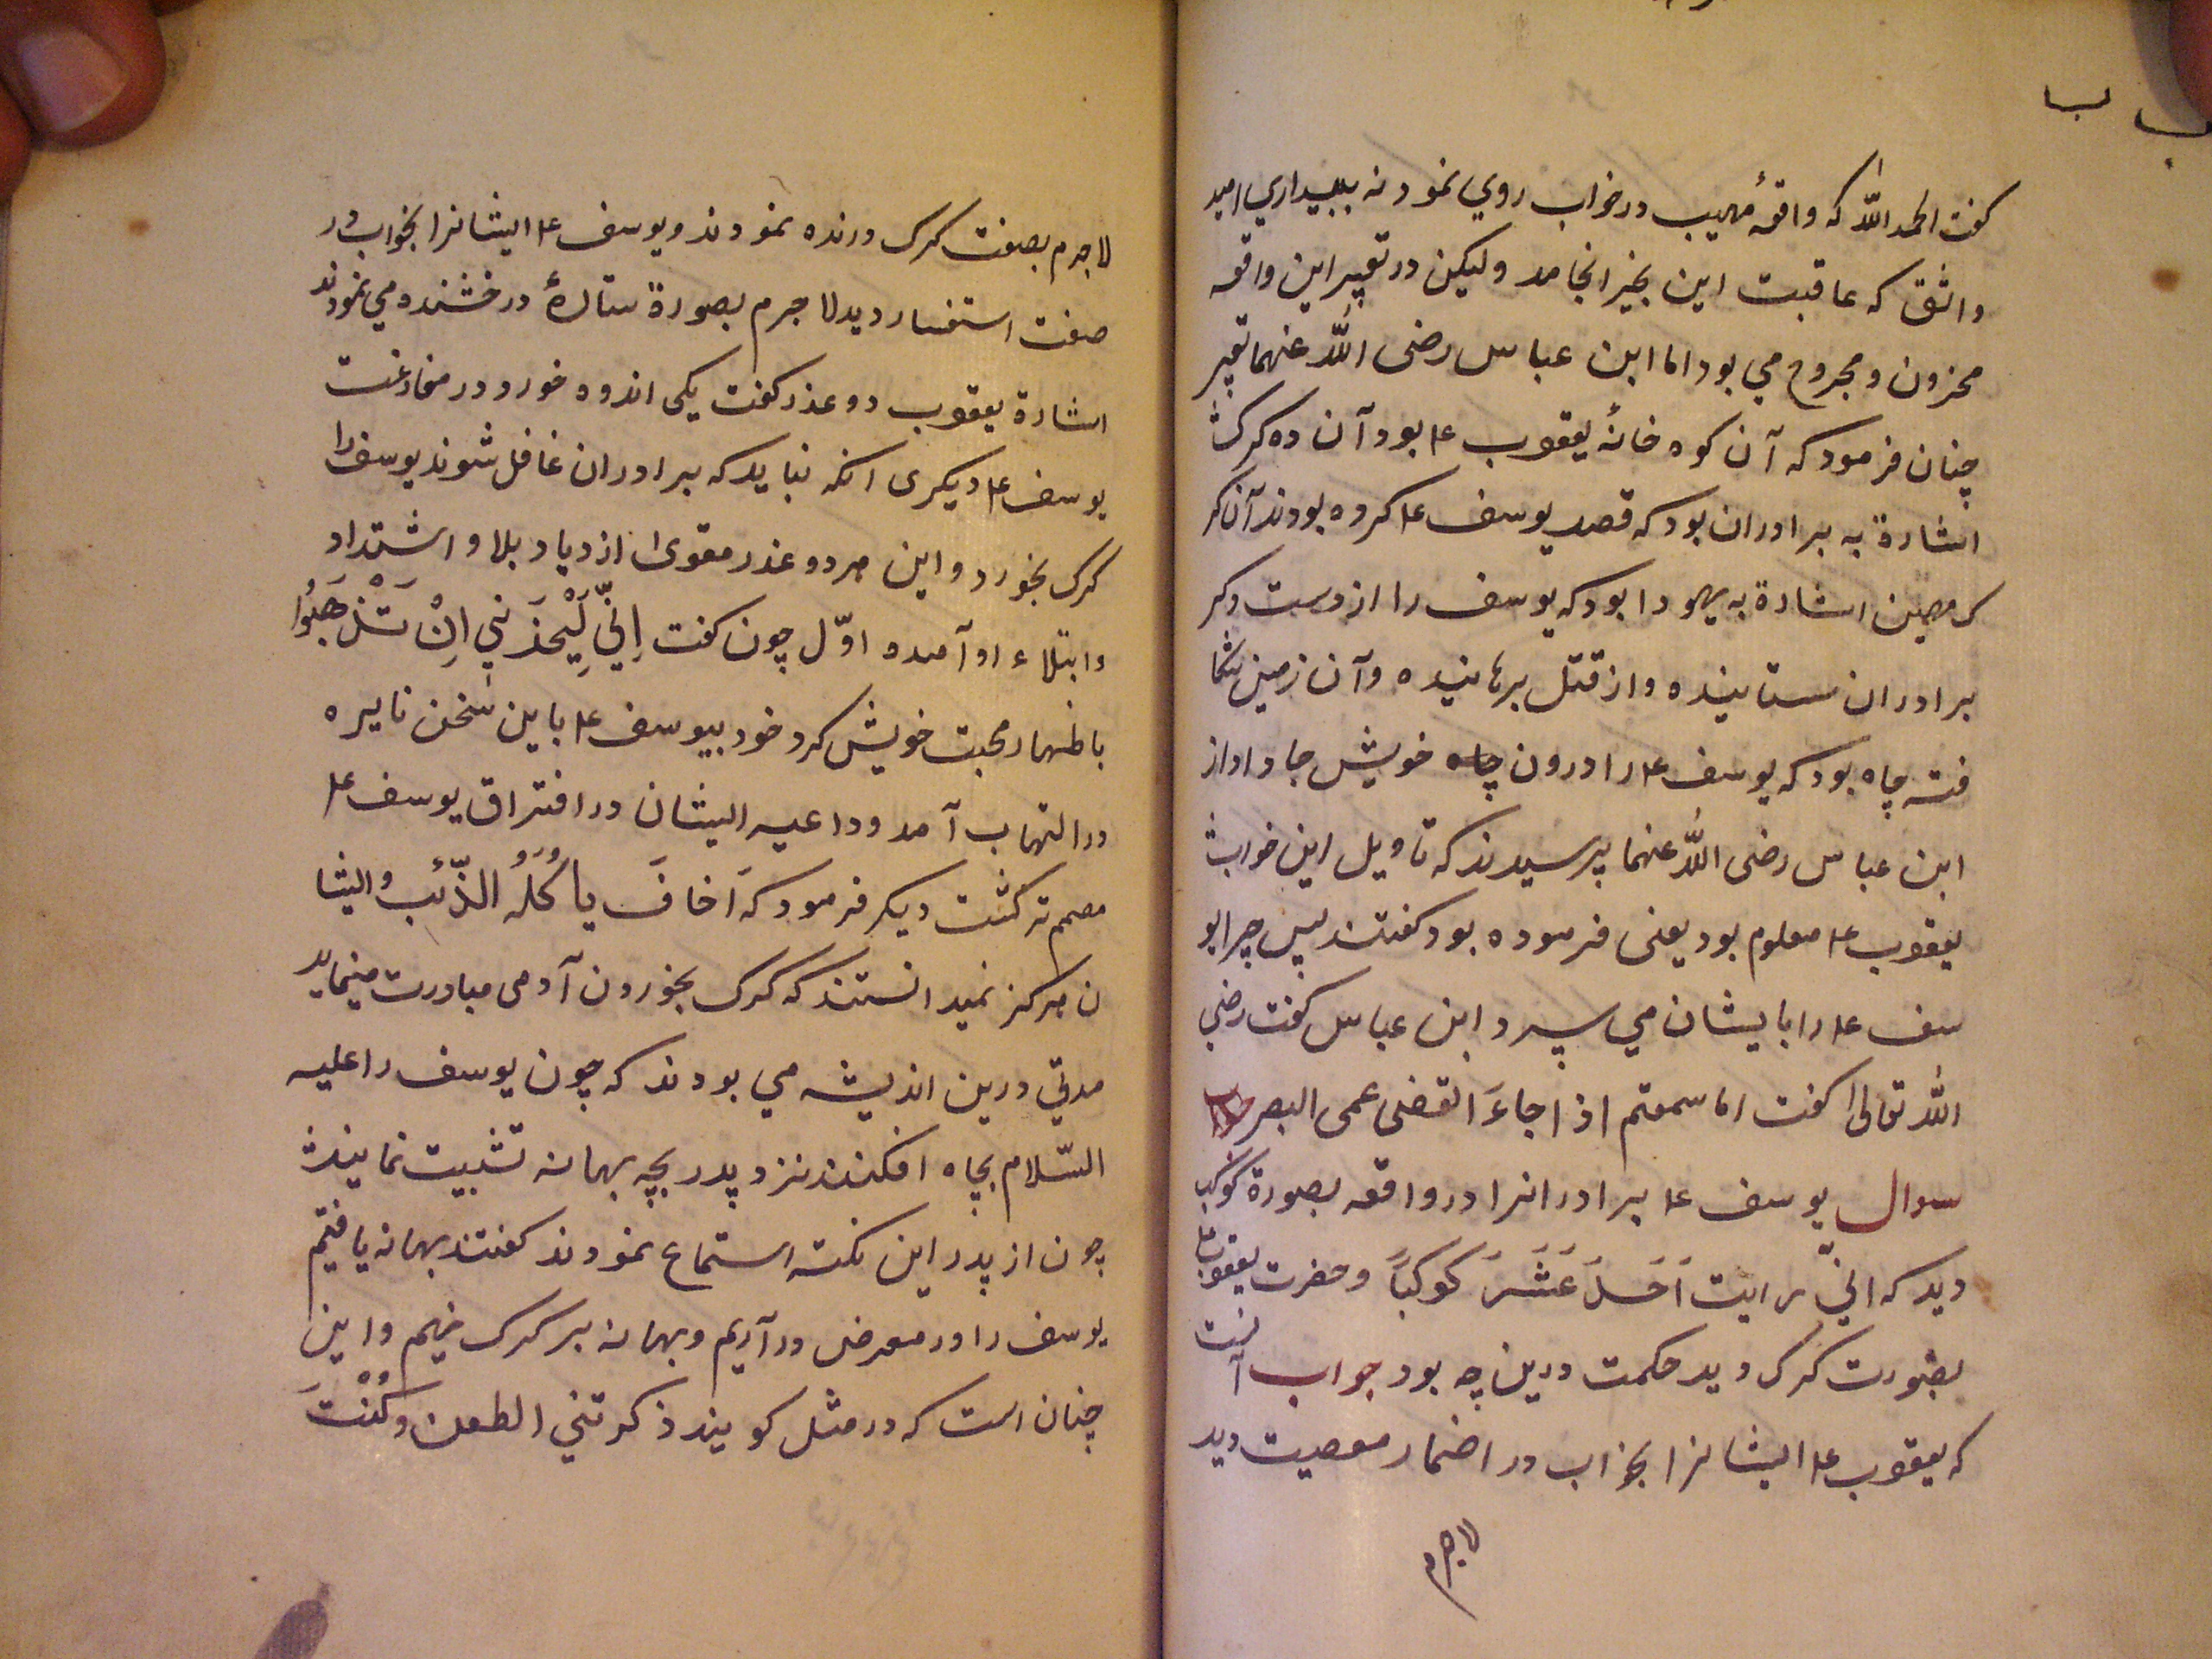 کفت الحمد الله که واقعهٔ مهیب در خواب روي نمود نه ببیداري امید
واثق که عاقبت این بخیر انجامد ولیکن در تعبیر این واقعه
محزون و مجروح مي بود اما ابن عباس رضى الله عنهما تعبیر
چنان فرمود که آن کوه خانهٔ یعقوب ع‍ بود آن ده کرک
اشارة به برادران بود که قصد یوسف ع‍ کرده بودند آن کر
ک مهین اشارة به یهودا بود که یوسف را از دست دکر
برادران ستانیده و از قتل برهانیده و آن زمین شکا
فته چاه بود که یوسف ع‍ را درون چاه خویش جا داد از
ابن عباس رضى الله عنهما پرسیدند که تاویل این خواب
یعقوب ع‍ معلوم بود یعنی فرموده بود کفتند پس چرا یو
سف ع‍ را بایشان مي سپرد ابن عباس کفت رضي
الله تعالى کفت اما سمعتم اذا جاءَ القضى عمى البصر
سوال یوسف ع‍ برادرانرا در واقعه بصورة کوکب
دید که انيّ رایت اَحَدَ عَشَرَ کوکباً و حضرت یعقوب ع‍
بصورت کرک دید حکمت درین چه بود جواب آنست
که یعقوب ع‍ ایشانرا بخواب در اضمار معصیت دید
لاجرم
لاجرم بصفت کرک درنده نمودند و یوسف ع‍ ایشانرا بخواب در
صفت استغفار دید لاجرم بصورة ستارهٔ درخشنده مي نمودند
اشارة یعقوب دو عذر کفت یکی اندوه خورد در مفارغت
یوسف ع‍ دیکری انکه نباید که برادران غافل شوند یوسف را
کرک بخورد و این هر دو عذر مقوی ازدیاد بلا و اشتداد
وابتلاء او آمده اوّل چون کفت اِنيِّ لَیَحْزَنني اِنْ تَذْهَبُوا
باظهار محبت خویش کرد خود بیوسف ع‍ باین سخن نایره
در التهاب آمد و داعیه ایشان در افتراق یوسف ع‍
مصمم تر کشت دیکر فرمود که اَخافَ یاکُلَهُ الذّئب وایشا
ن هرکز نمیدانستند که کرک بخوردن آدمی مبادرت مینماید
مدتي درین اندیشه مي بودند که چون یوسف را علیه
السّلام بچاه افکنند نزد پدر بچه بهانه تشبیت نمایند
چون از پدر این نکته استماع نمودند کفتند بهانه یافتیم
یوسف را در معرض در آریم و بهانه بر کرک نهیم و این
چنان است که در مثل کویند ذکرتني الطعن وکُنْتَ